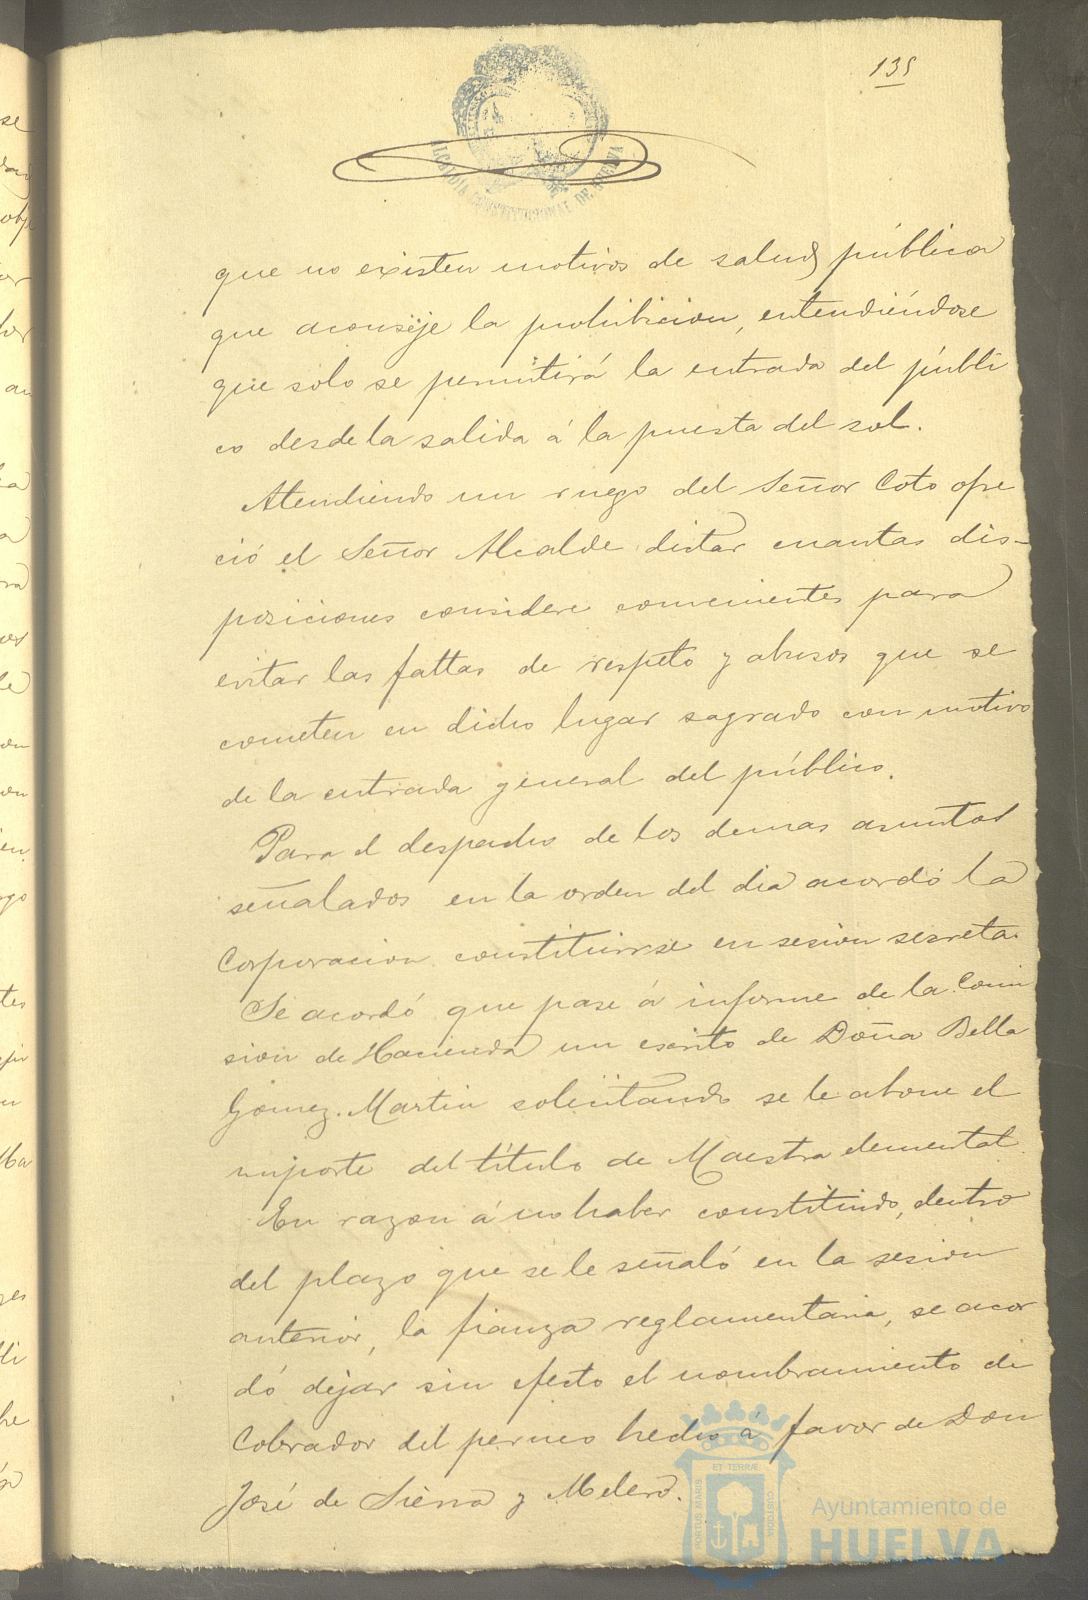 135
ALCALDIA CONSTITUCIONAL DE HUELVA
que no existen motivos de salud pública
que aconseje la prohibicion, entendiéndose
que solo se permitirá la entrada del públi
co desde la salida á la puesta del sol.
Atendiendo un ruego del Señor Coto ofre
ció el Señor Alcalde dictar cuantas dis-
posiciones considere convenientes para
evitar las faltas de respeto y abusos que se
cometen en dicho lugar sagrado con motivo
de la entrada general del público.
Para el despacho de los demas asuntos
señalados en la orden del dia acordó la
Corporacion constituirse en sesion secreta.
Se acordó que pase á informe de la Comi
sion de Hacienda un escrito de Doña Bella
Gomez Martin solicitando se le abone el
importe del título de Maestra elemental.
En razon á no haber constituido, dentro
del plazo que se le señaló en la sesion
anterior, la fianza reglamentaria, se acor
dó dejar sin efecto el nombramiento de
Cobrador del perneo hecho á favor de Don
José de Sierra y Melero.
PORTUS MARIS ET TERRÆ CUSTODIA
Ayuntamiento de
HUELVA